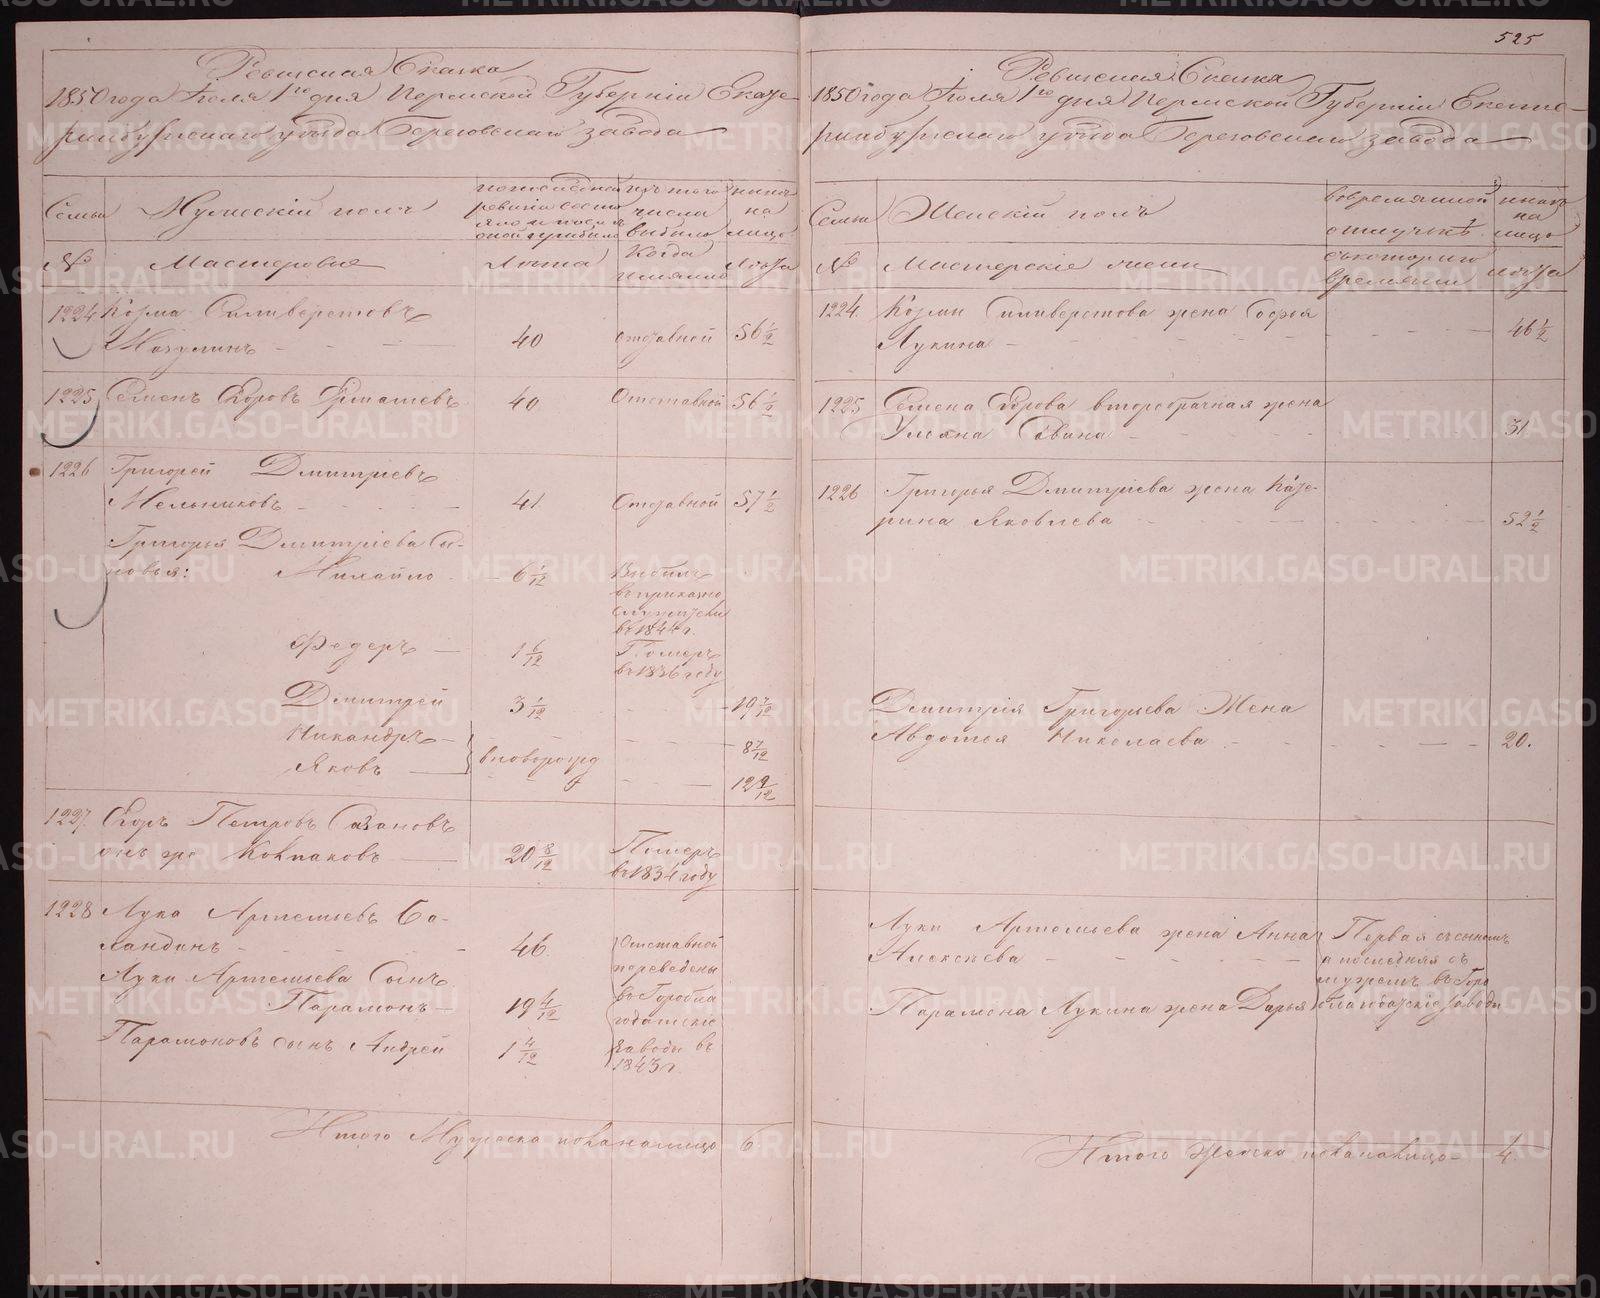 Ревизская Сказка
1850 года Іюля 1го дня Пермской Губерніи Екате-
ринбургскаго уѣзда Березовскаго завода
Семьи
Мужескій полъ
по последней ревизіи состо
яло и после
оной прибыло
изъ того
числа
выбыло
ныне
на
лицо
№
Мастеровыя
Лѣта
Когда
имянно
Лѣта
1224 Козма Силиверстовъ
40 Отставной 56 1/2
1225 Семенъ Егоровъ Ярмашевъ 40 Отставной 56 1/2
1226 Григорей Дмитріевъ
Мельниковъ 41 Отставной 57 1/2
Григорья Дмитріева Сы-
новья: Михайло 6 1/12 Выбылъ
въ приказно
служители
въ 1844 г.
Федеръ 1 6/12 Померъ
въ 1836 году
Дмитрей 3 1/12 19 7/12
Никандръ 8 7/12
Яковъ вноворожд 12 9/12
1227. Егоръ Петровъ Сазановъ
онъ же Колпаковъ 20 8/12 Померъ
въ 1834 году
1228 Лука Артемьевъ Ба-
ландинъ 46. Отставной
переведены
въ Горобла
годатскіе
заводы въ
1843 г.
Луки Артемьева Сынъ
Парамонъ 19 4/12
Парамоновъ сынъ Андрей 1 4/12
Итого Мужеска пола налицо 6
525
Ревизская Сказка
1850 года Іюля 1го дня Пермской Губерніи Екате-
ринбургскаго уѣзда Березовскаго завода
Семьи
Женскій полъ
во времянной
отлучкѣ
ныне
на
лицо
№
Мастерскіе жены
съ котораго
времяни
Лѣта
1224. Козмы Силиверстова жена Софья
Лукина 46 1/2
1225 Семена Егорова второбрачная жена
Ульяна Савина 31
1226 Григорья Дмитріева жена Кате-
рина Яковлева 52 1/2
Дмитрія Григорьева Жена
Авдотья Николаева 20.
Луки Артемьева жена Анна
Алексѣева
Первая съ сыномъ
а последняя съ
мужемъ въ Горо
благодатскіе заводы
Парамона Лукина жена Дарья
Итого женска пола налицо 4.
METRIKI.GASO-URAL.RU